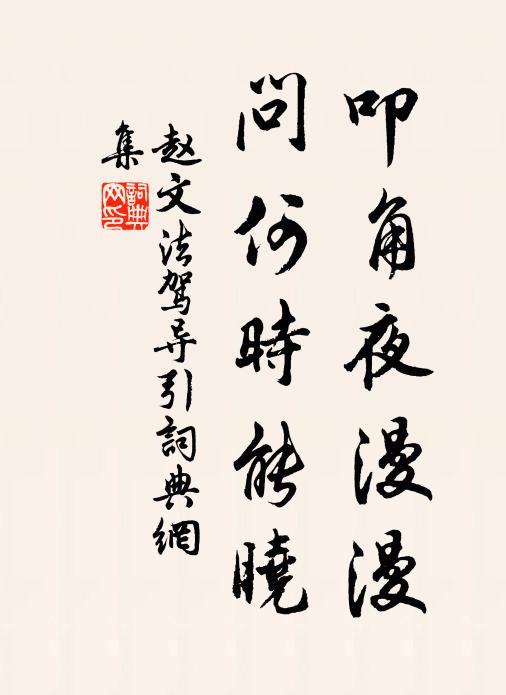 叩角夜漫漫
問何時能曉
赵文法驾导引詞典網
集
詞典
网印